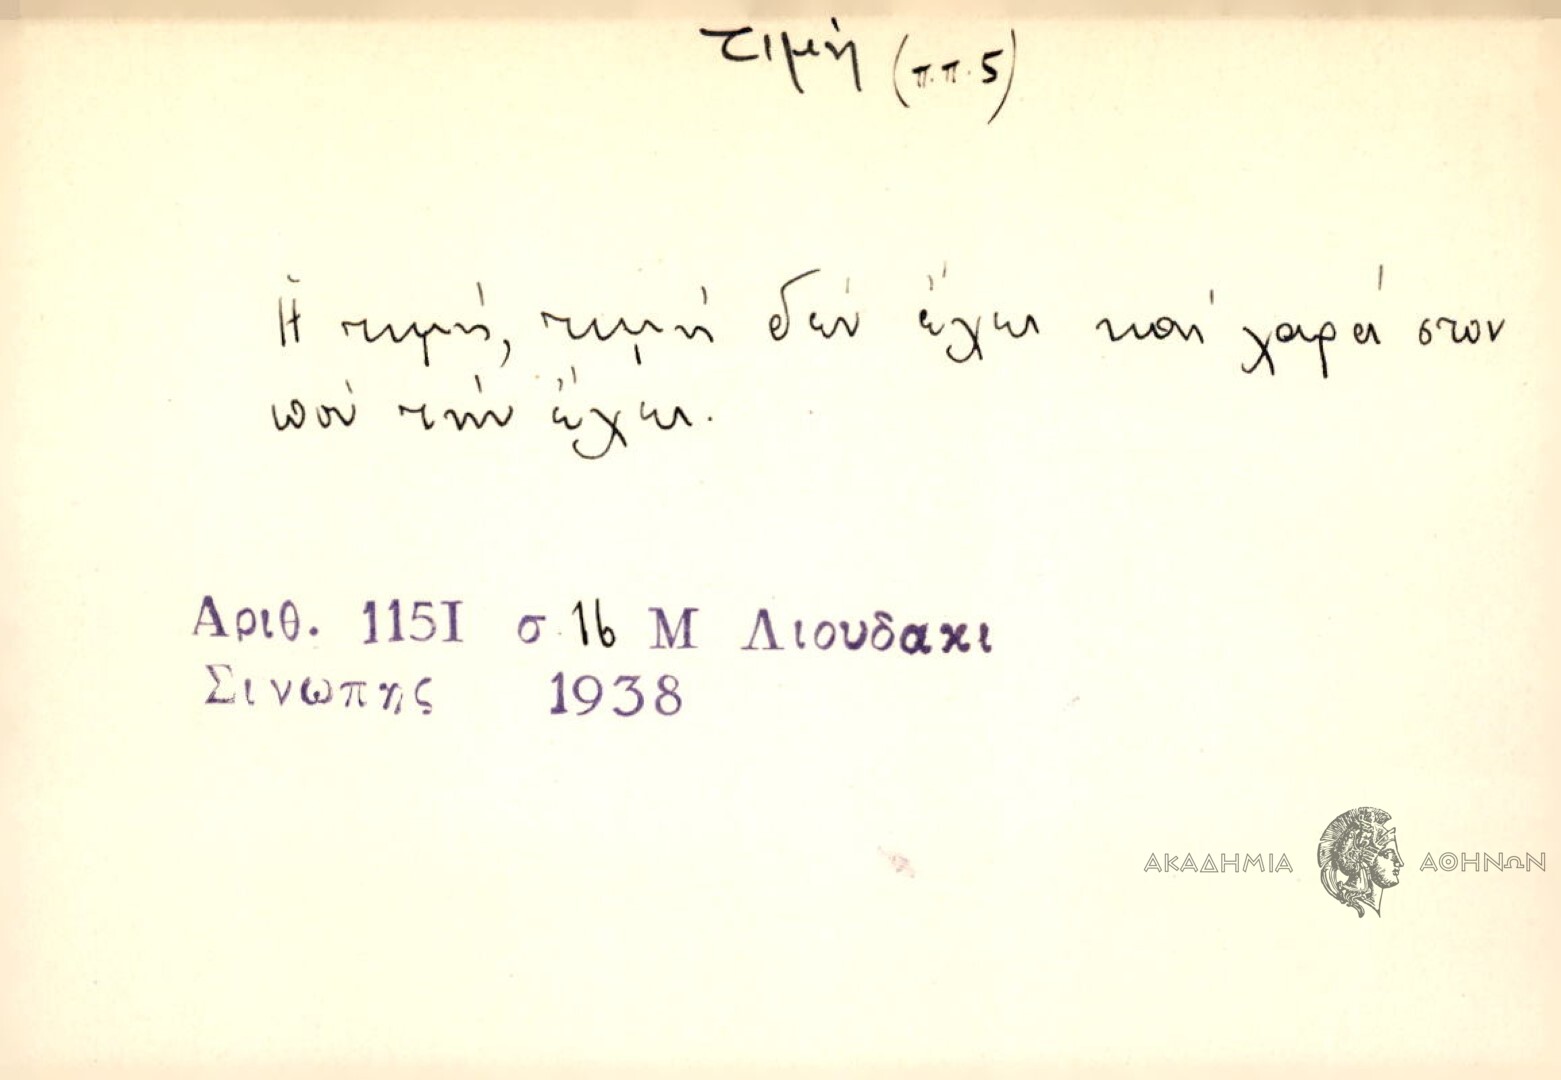 τιμή (π.π. 5)
Ἡ τιμή, τιμή δέν ἔχει καί χαρά στον
πού τήν ἔχει.
Αριθ. 115Ι σ 16 Μ Λιουδακι
Σινωπης 1938
ΑΚΑΔΗΜΙΑ ΑΘΗΝΩΝ